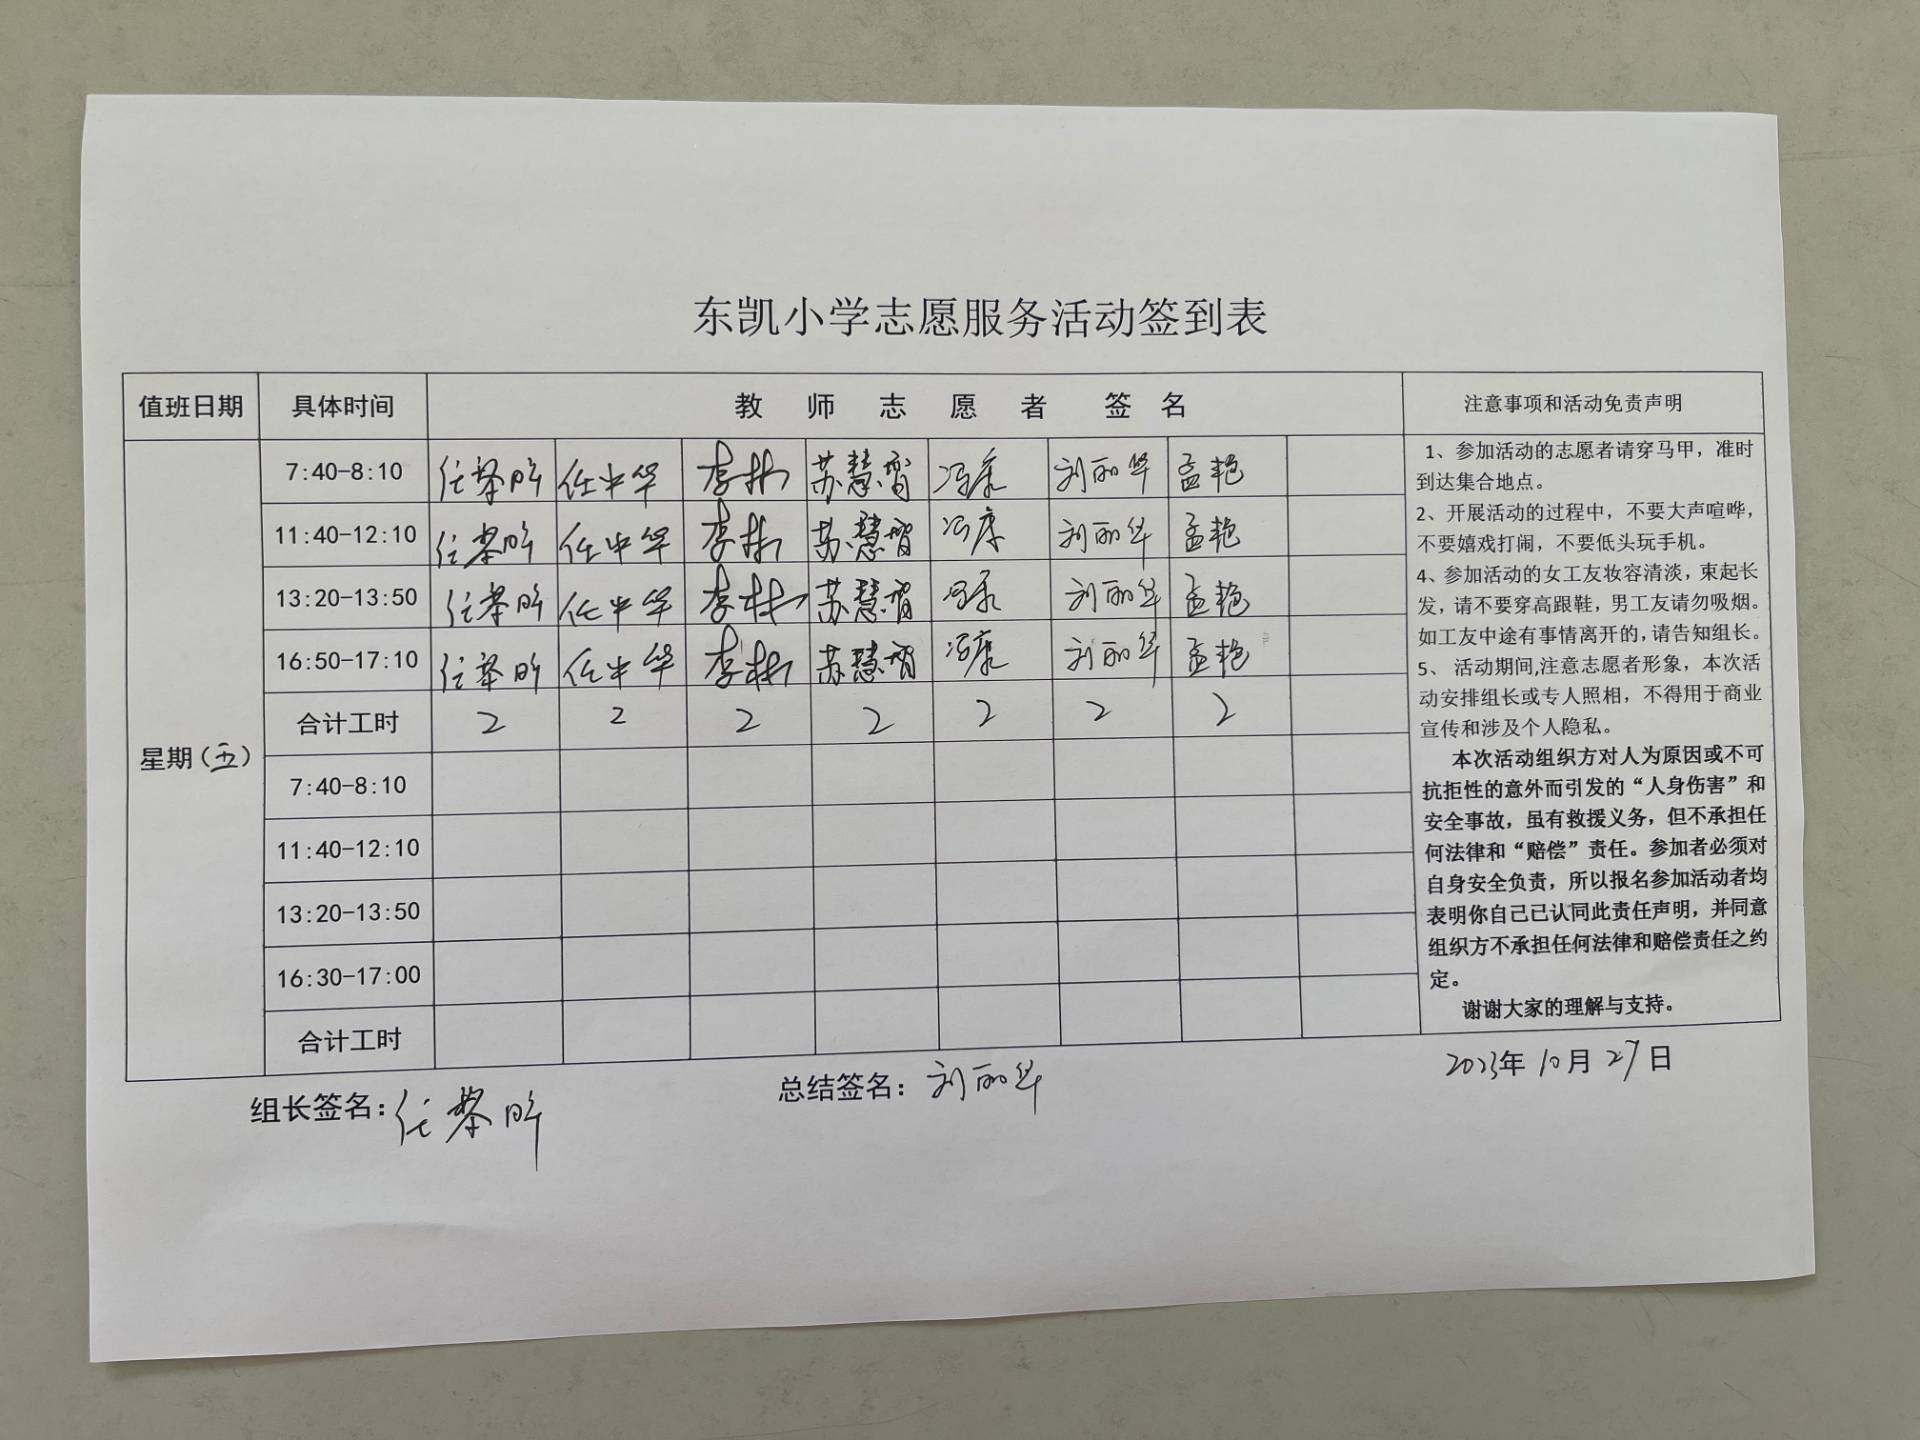 东凯小学志愿服务活动签到表
值班日期 具体时间 教师志愿者签名 注意事项和活动免责声明
星期(五)
7:40-8:10 任黎昕 任中华 李彬 苏慧智 冯康 刘丽华 孟艳
11:40-12:10 任黎昕 任中华 李彬 苏慧智 冯康 刘丽华 孟艳
13:20-13:50 任黎昕 任中华 李彬 苏慧智 冯康 刘丽华 孟艳
16:50-17:10 任黎昕 任中华 李彬 苏慧智 冯康 刘丽华 孟艳
合计工时 2 2 2 2 2 2 2
7:40-8:10
11:40-12:10
13:20-13:50
16:30-17:00
合计工时
1、参加活动的志愿者请穿马甲，准时
到达集合地点。
2、开展活动的过程中，不要大声喧哗，
不要嬉戏打闹，不要低头玩手机。
4、参加活动的女工友妆容清淡，束起长
发，请不要穿高跟鞋，男工友请勿吸烟。
如工友中途有事情离开的，请告知组长。
5、 活动期间,注意志愿者形象，本次活
动安排组长或专人照相，不得用于商业
宣传和涉及个人隐私。
本次活动组织方对人为原因或不可
抗拒性的意外而引发的“人身伤害”和
安全事故，虽有救援义务，但不承担任
何法律和“赔偿”责任。参加者必须对
自身安全负责，所以报名参加活动者均
表明你自己已认同此责任声明，并同意
组织方不承担任何法律和赔偿责任之约
定。
谢谢大家的理解与支持。
组长签名：任黎昕 总结签名：刘丽华 2023年10月27日